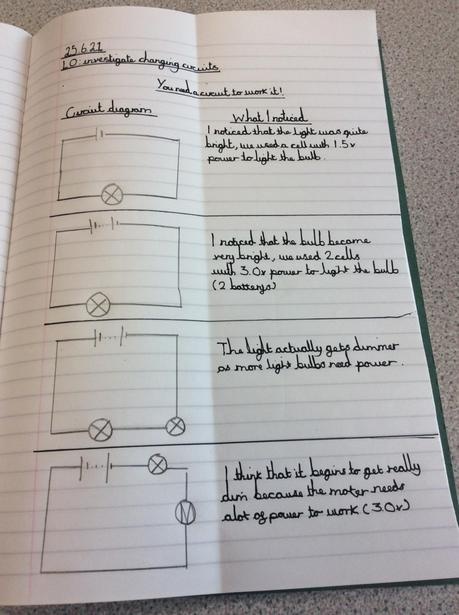 25.6.21
LO: investigate changing circuits
You need a circuit to work it!
Circuit diagram
What I noticed
I noticed that the light was quite
bright, we used a cell with 1.5v
power to light the bulb.
I noticed that the bulb became
very bright, we used 2 cells
with 3.0v power to light the bulb
(2 batterys)
The light actually gets dimmer
as more light bulbs need power.
I think that it begins to get really
dim because the moter needs
alot of power to work (3.0v)
M